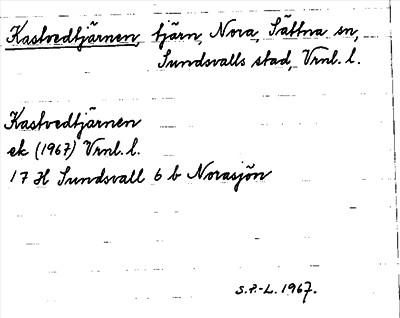 Kastvedtjärnen, tjärn, Nora, Sättna sn,
Sundsvalls stad, Vrnl. l.
Kastvedtjärnen
ek (1967) Vrnl. l.
17 H Sundsvall 6 b Norasjön
S.P.-L. 1967.